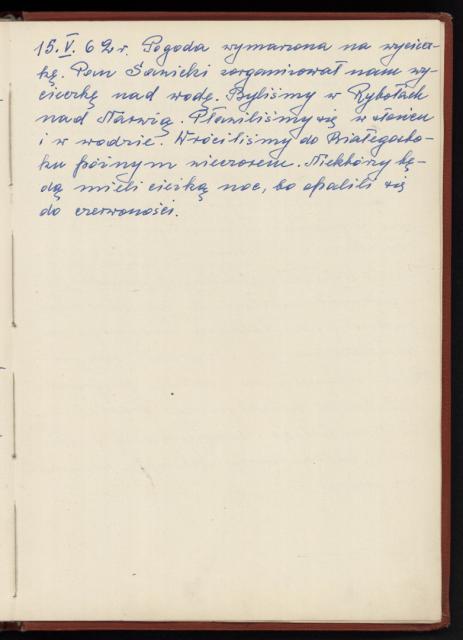 15.V.62r. Pogoda wymarzona na wyciecz-
kę. Pan Sawicki zorganizował nam wy-
cieczkę nad wodę. Byliśmy w Rybołach
nad Narwią. Pławiliśmy się w słońcu
i w wodzie. Wróciliśmy do Białegosto-
ku późnym wieczorem. Niektórzy bę-
dą mieli ciężką noc, bo opalili się
do czerwoności.